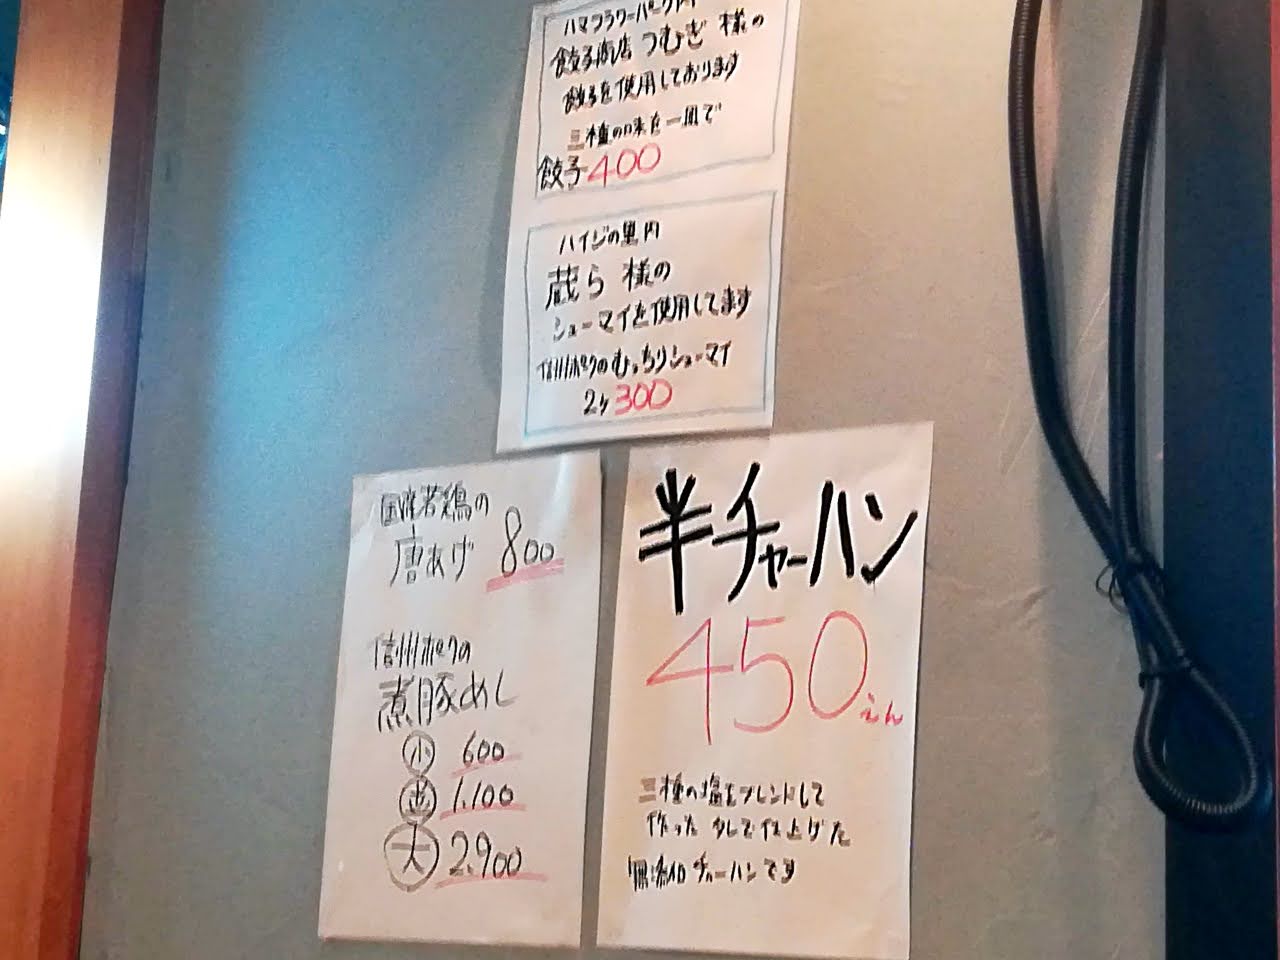 ハマフラワーパーク内
餃子商店 つむぎ 様の
餃子を使用しております
三種の味を一皿で
餃子 400
ハイジの里内
蔵ら 様の
シューマイを使用してます
信州ポークのむっちりシューマイ
2ヶ 300
国産若鶏の
唐あげ 800
信州ポークの
煮豚めし
小 600
並 1.100
大 2.900
半チャーハン
450えん
三種の塩をブレンドして
作った だしで仕上げた
無添加チャーハンです